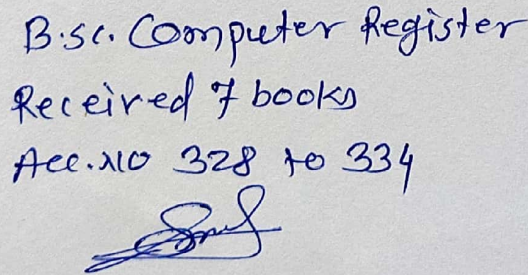 B.sc. Computer Register
Received 7 books
Acc.No 328 to 334